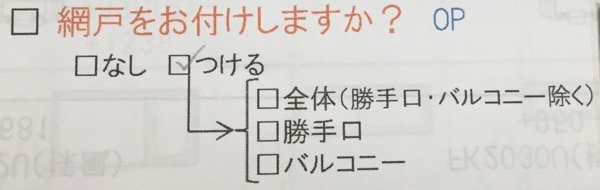 □ 網戸をお付けしますか？ OP
□なし ☑つける
□全体（勝手口・バルコニー除く）
□勝手口
□バルコニー